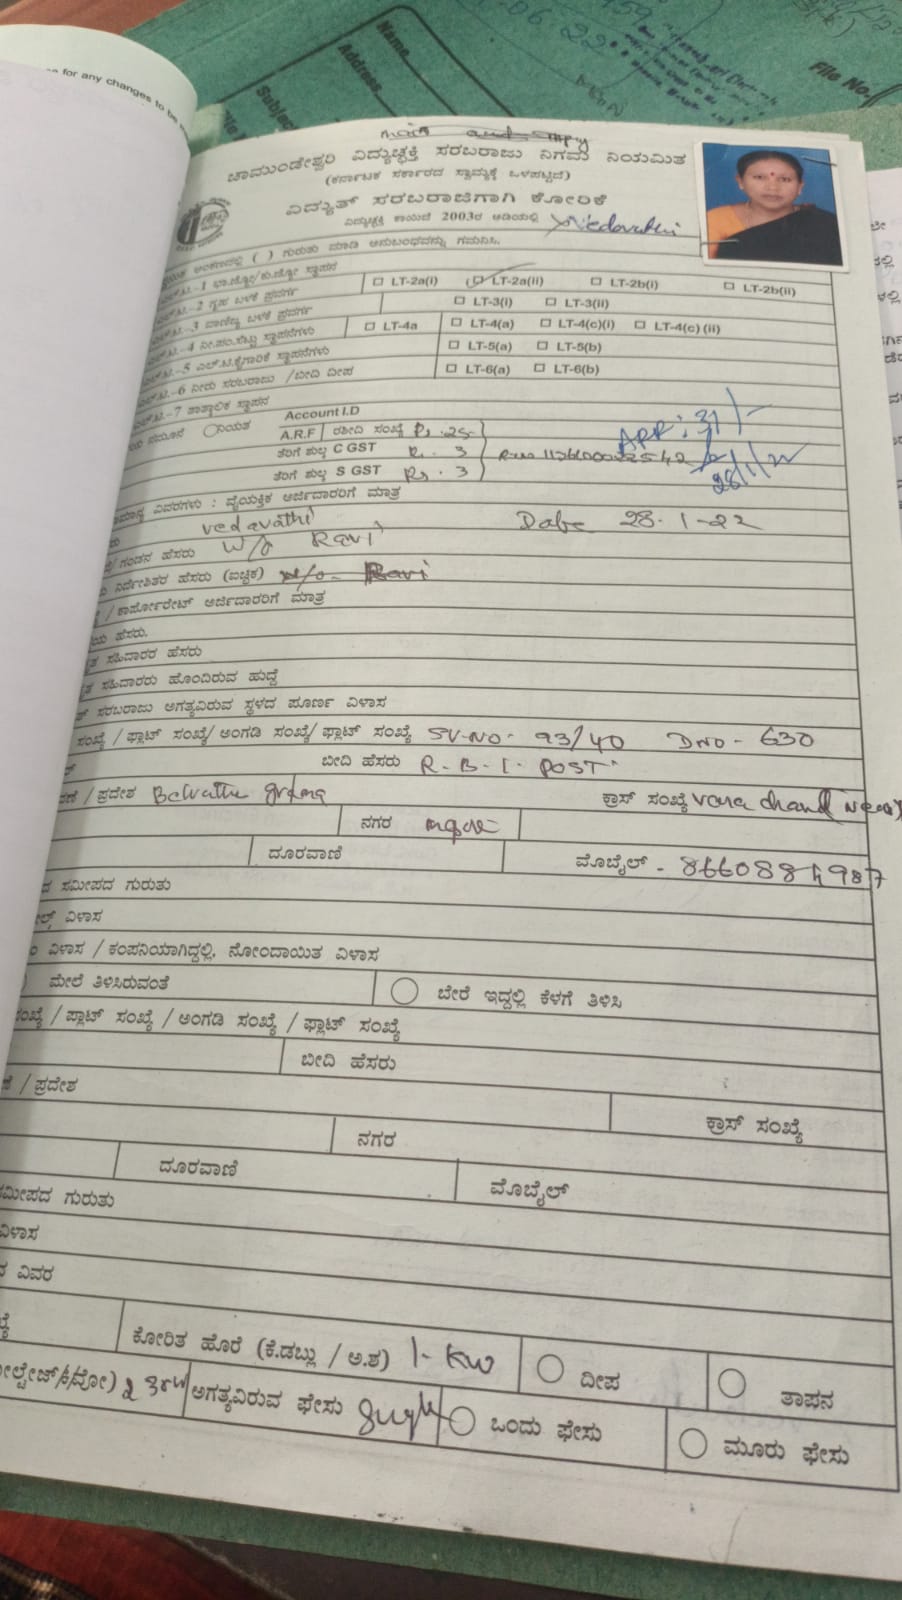 for any changes to be
Name
Address
Subject
File No.
ಚಾಮುಂಡೇಶ್ವರಿ ವಿದ್ಯುಚ್ಛಕ್ತಿ ಸರಬರಾಜು ನಿಗಮ ನಿಯಮಿತ
(ಕರ್ನಾಟಕ ಸರ್ಕಾರದ ಸ್ವಾಮ್ಯಕ್ಕೆ ಒಳಪಟ್ಟಿದೆ)
ವಿದ್ಯುತ್ ಸರಬರಾಜಿಗಾಗಿ ಕೋರಿಕೆ
ವಿದ್ಯುಚ್ಛಕ್ತಿ ಕಾಯಿದೆ 2003ರ ಅಡಿಯಲ್ಲಿ Vedavathi
ಅಂಕಣದಲ್ಲಿ ( ) ಗುರುತು ಮಾಡಿ ಅನುಬಂಧವನ್ನು ಗಮನಿಸಿ.
-1 ಭಾ.ಜ್ಯೋ/ಕು.ಜ್ಯೋ ಸ್ಥಾಪನ LT-2a(i) LT-2a(ii) LT-2b(i) LT-2b(ii)
-2 ಗೃಹ ಬಳಕೆ ಪ್ರವರ್ಗ LT-3(i) LT-3(ii)
-3 ವಾಣಿಜ್ಯ ಬಳಕೆ ಪ್ರವರ್ಗ LT-4a LT-4(a) LT-4(c)(i) LT-4(c) (ii)
-4 ನೀ.ಪಂ.ಸೆಟ್ಟು ಸ್ಥಾಪನೆಗಳು LT-5(a) LT-5(b)
-5 ಎಲ್.ಟಿ.ಕೈಗಾರಿಕೆ ಸ್ಥಾಪನೆಗಳು LT-6(a) LT-6(b)
-6 ನೀರು ಸರಬರಾಜು /ಬೀದಿ ದೀಪ
-7 ತಾತ್ಕಾಲಿಕ ಸ್ಥಾಪನ
ನಮೂನೆ ನಿಯತ Account I.D
A.R.F ರಶೀದಿ ಸಂಖ್ಯೆ Rs. 25
ತೆರಿಗೆ ಶುಲ್ಕ C GST Rs. 3
ತೆರಿಗೆ ಶುಲ್ಕ S GST Rs. 3
ARR: 31/-
28/1/22
ವಿವರಗಳು : ವೈಯಕ್ತಿಕ ಅರ್ಜಿದಾರರಿಗೆ ಮಾತ್ರ
vedavathi Date 28-1-22
/ಗಂಡನ ಹೆಸರು W/o Ravi
ನಿರ್ದೇಶಿತರ ಹೆಸರು (ಐಚ್ಛಿಕ) w/o- Ravi
/ ಕಾರ್ಪೋರೇಟ್ ಅರ್ಜಿದಾರರಿಗೆ ಮಾತ್ರ
ಹೆಸರು.
ಸಹಿದಾರರ ಹೆಸರು
ಸಹಿದಾರರು ಹೊಂದಿರುವ ಹುದ್ದೆ
ಸರಬರಾಜು ಅಗತ್ಯವಿರುವ ಸ್ಥಳದ ಪೂರ್ಣ ವಿಳಾಸ
ಸಂಖ್ಯೆ / ಫ್ಲಾಟ್ ಸಂಖ್ಯೆ/ ಅಂಗಡಿ ಸಂಖ್ಯೆ/ ಫ್ಲಾಟ್ ಸಂಖ್ಯೆ SV-NO- 93/40 DNO - 630
ಬೀದಿ ಹೆಸರು R. B. I. POST
/ ಪ್ರದೇಶ Belvathe grama ಕ್ರಾಸ್ ಸಂಖ್ಯೆ
ನಗರ
ದೂರವಾಣಿ ಮೊಬೈಲ್ - 8660884987
ಸಮೀಪದ ಗುರುತು
ವಿಳಾಸ
ವಿಳಾಸ / ಕಂಪನಿಯಾಗಿದ್ದಲ್ಲಿ, ನೋಂದಾಯಿತ ವಿಳಾಸ
ಮೇಲೆ ತಿಳಿಸಿರುವಂತೆ ಬೇರೆ ಇದ್ದಲ್ಲಿ ಕೆಳಗೆ ತಿಳಿಸಿ
ಸಂಖ್ಯೆ / ಪ್ಲಾಟ್ ಸಂಖ್ಯೆ / ಅಂಗಡಿ ಸಂಖ್ಯೆ / ಫ್ಲಾಟ್ ಸಂಖ್ಯೆ
ಬೀದಿ ಹೆಸರು
/ ಪ್ರದೇಶ
ಕ್ರಾಸ್ ಸಂಖ್ಯೆ
ನಗರ
ದೂರವಾಣಿ ಮೊಬೈಲ್
ಸಮೀಪದ ಗುರುತು
ವಿಳಾಸ
ವಿವರ
ಕೋರಿತ ಹೊರೆ (ಕೆ.ಡಬ್ಲ್ಯು / ಅ.ಶ) 1- KW ದೀಪ ತಾಪನ
ಅಗತ್ಯವಿರುವ ಫೇಸು ಒಂದು ಫೇಸು ಮೂರು ಫೇಸು